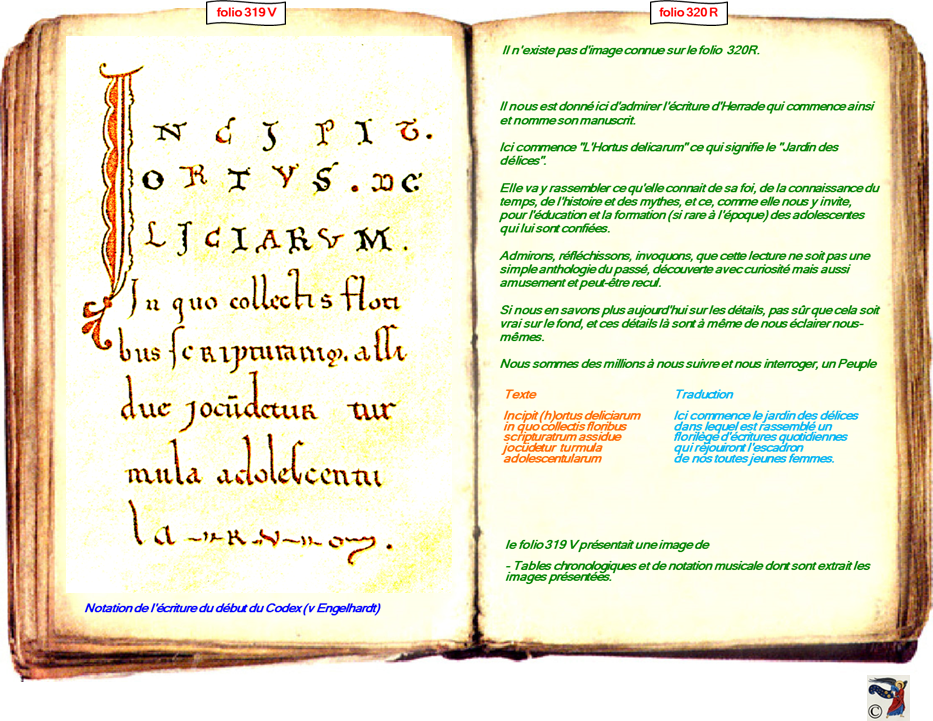 folio 319 V
INCIPIT.
ORTVS. DE
LICIARVM.
In quo collectis flori
bus scripturarum, assi
due jocūdetur tur
mula adolescentu
la
Notation de l'écriture du début du Codex (v Engelhardt)
folio 320 R
Il n'existe pas d'image connue sur le folio 320R.
Il nous est donné ici d'admirer l'écriture d'Herrade qui commence ainsi
et nomme son manuscrit.
Ici commence "L'Hortus delicarum" ce qui signifie le "Jardin des
délices".
Elle va y rassembler ce qu'elle connait de sa foi, de la connaissance du
temps, de l'histoire et des mythes, et ce, comme elle nous y invite,
pour l'éducation et la formation (si rare à l'époque) des adolescentes
qui lui sont confiées.
Admirons, réfléchissons, invoquons, que cette lecture ne soit pas une
simple anthologie du passé, découverte avec curiosité mais aussi
amusement et peut-être recul.
Si nous en savons plus aujourd'hui sur les détails, pas sûr que cela soit
vrai sur le fond, et ces détails là sont à même de nous éclairer nous-
mêmes.
Nous sommes des millions à nous suivre et nous interroger, un Peuple
Texte
Incipit (h)ortus deliciarum
in quo collectis floribus
scripturatrum assidue
jocūdetur turmula
adolescentularum
Traduction
Ici commence le jardin des délices
dans lequel est rassemblé un
florilège d'écritures quotidiennes
qui réjouiront l'escadron
de nos toutes jeunes femmes.
le folio 319 V présentait une image de
- Tables chronologiques et de notation musicale dont sont extrait les
images présentées.
©